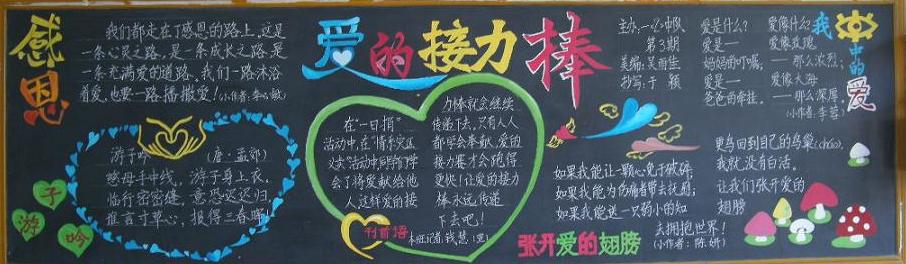 感恩
我们都走在了感恩的路上,这是
一条心灵之路,是一条成长之路,是
一条充满爱的道路。我们一路沐浴
着爱,也要一路播撒爱!
游子吟
游子吟 (唐·孟郊)
慈母手中线,游子身上衣。
临行密密缝,意恐迟迟归。
谁言寸草心,报得三春晖
爱的接力棒
在“一日捐”
活动中,在
会了将爱献给他
人,这样爱的接
力棒就会继续
传递下去。只有人人
都学会奉献,爱的
接力赛才会跑得
更快!让爱的接力
棒永远传递
下去吧!
刊首语
主办:一(2)中队
第3期
美编:吴雨生
抄写:于颖
我心中的爱
爱是什么?
爱是一
妈妈的叮嘱;
爱是一
爸爸的牵挂。
爱像什么?
爱像玫瑰
——那么浓烈;
爱像大海
——那么深厚。
(小作者:李蓉)
如果我能让一颗心免于破碎;
如果我能为伤痛者带去抚慰;
如果我能送一只弱小的知
更鸟回到自己的鸟巢(cháo),
我就没有白活。
让我们张开爱的
翅膀
去拥抱世界!
(小作者:陈妍)
张开爱的翅膀